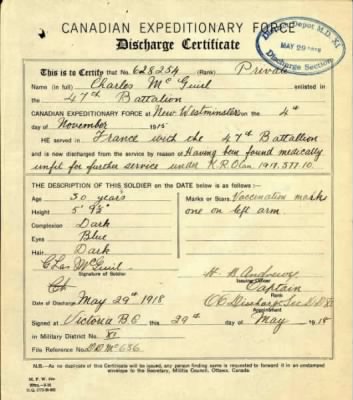 CANADIAN EXPEDITIONARY FORCE
Discharge Certificate
Depot M.D. XI
MAY 29 1918
Discharge Section
This is to Certify that No. 628254 (Rank) Private
Name (in full) Charles McGuil enlisted in
the 47th Battalion
CANADIAN EXPEDITIONARY FORCE at New Westminster on the 4th
day of November 1915
HE served in France with the 47th Battalion
and is now discharged from the service by reason of Having been found medically
unfit for further service under K.R.O Can. 1917. 377.10.
THE DESCRIPTION OF THIS SOLDIER on the DATE below is as follows:—
Age 30 years
Height 5' 9½"
Complexion Dark
Eyes Blue
Hair Dark
Marks or Scars Vaccination marks
one on left arm
Chas McGuil
Signature of Soldier
Issuing Officer
Captain
Rank
Appointment
Date of Discharge May 29th 1918
Signed at Victoria B.C this 29th day of May 1918
in Military District No. XI
File Reference No. DD Mc 636
N.B.—As no duplicate of this Certificate will be issued, any person finding same is requested to forward it in an unstamped
envelope to the Secretary, Militia Council, Ottawa, Canada.